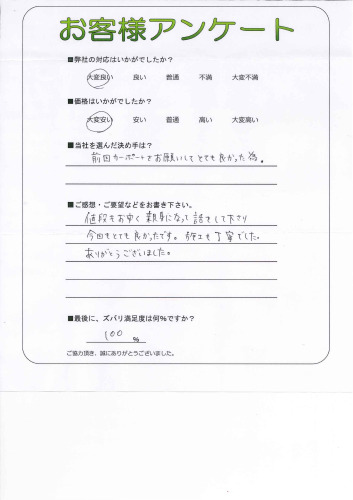 お客様アンケート
■弊社の対応はいかがでしたか?
大変良い 良い 普通 不満 大変不満
■価格はいかがでしたか?
大変安い 安い 普通 高い 大変高い
■当社を選んだ決め手は?
前回カーポートをお願いしてとても良かった為。
■ご感想・ご要望などをお書き下さい。
値段もお安く親身になって話をして下さり
今回もとても良かったです。施工も丁寧でした。
ありがとうございました。
■最後に、ズバリ満足度は何%ですか?
100 %
ご協力頂き、誠にありがとうございました。